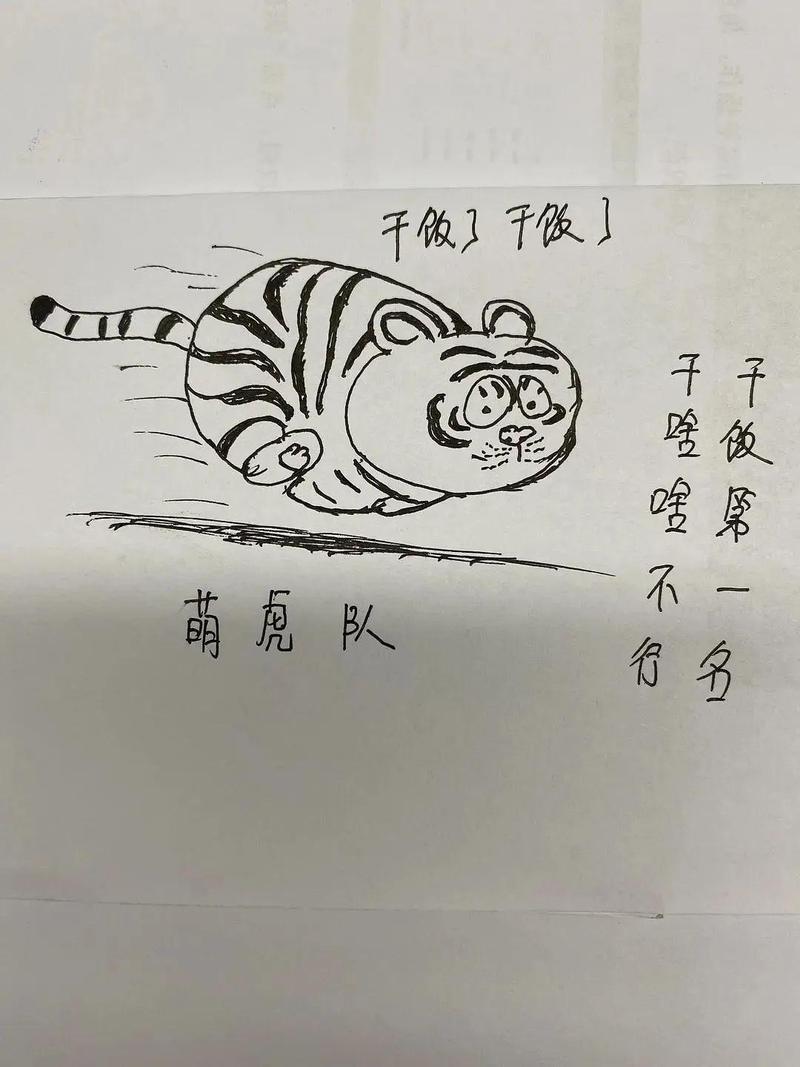 干饭了 干饭了
干饭第一名
干啥啥不行
萌虎队